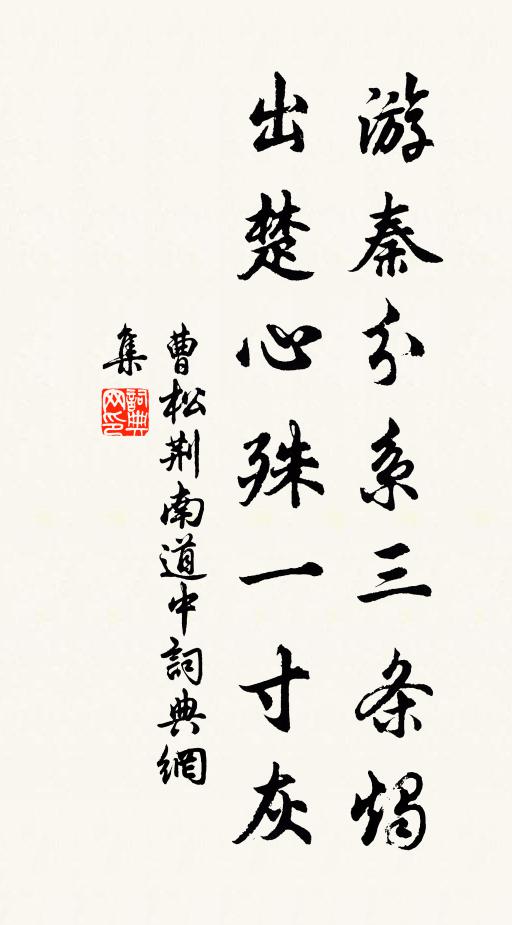 游秦分系三条燭
出楚心殊一寸灰
曹松荆南道中詞典網
集
詞典
网印